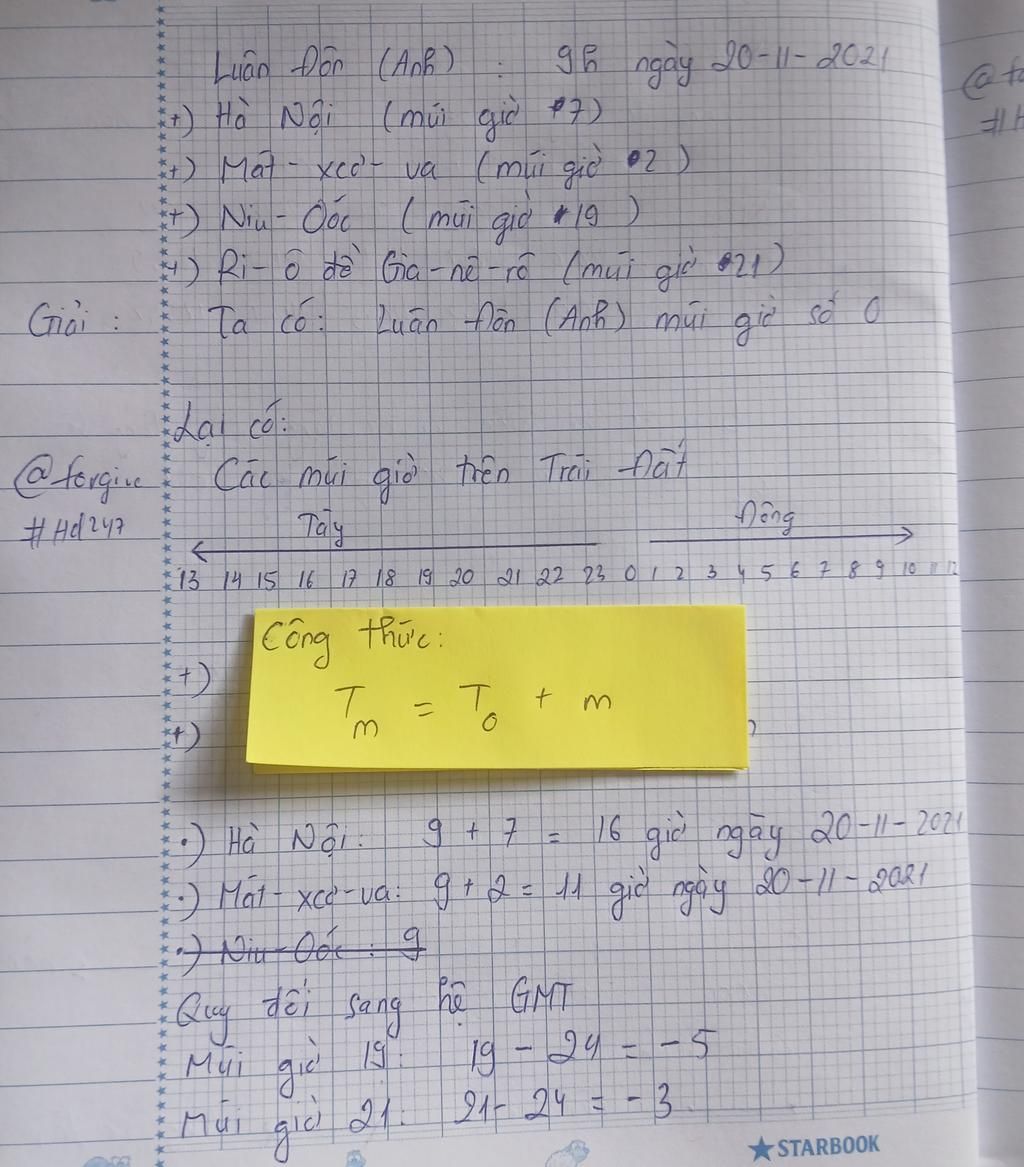 Luân Đôn (Anh) : 9h ngày 20-11-2021
+) Hà Nội (múi giờ 7)
+) Mát-xcơ-va (múi giờ 2)
+) Niu-Oóc (múi giờ 19)
+) Ri-ô đề Gia-nê-rô (múi giờ 21)
Giải : Ta có: Luân Đôn (Anh) múi giờ số 0
Lại có:
@forgive Các múi giờ trên Trái Đất
#Hd247
Tây Đông
13 14 15 16 17 18 19 20 21 22 23 0 1 2 3 4 5 6 7 8 9 10 11 12
Công thức:
+)
Tm = T0 + m
+)
•) Hà Nội: 9 + 7 = 16 giờ ngày 20-11-2021
•) Mát-xcơ-va: 9 + 2 = 11 giờ ngày 20-11-2021
•) Niu-Oóc : 9
Quy đổi sang hệ GMT
Múi giờ 19: 19 - 24 = -5
Múi giờ 21: 21 - 24 = -3
STARBOOK